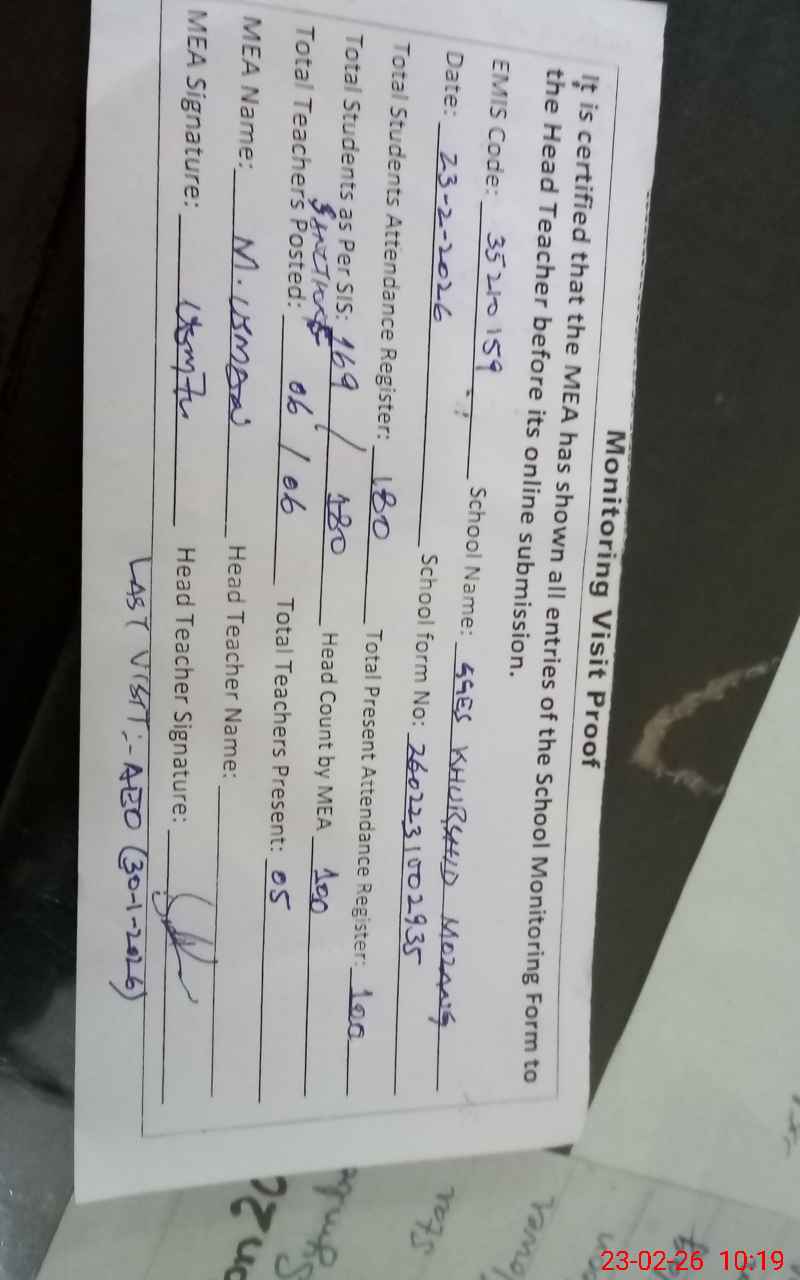 Monitoring Visit Proof
It is certified that the MEA has shown all entries of the School Monitoring Form to
the Head Teacher before its online submission.
EMIS Code: 35210159 School Name: GGES KHURSHID MOZANG
Date: 23-2-2026 School form No: 2602231002935
Total Students Attendance Register: 180 Total Present Attendance Register: 100
Total Students as Per SIS: 169 / 180 Head Count by MEA 100
Total Teachers Posted: 06 / 06 Total Teachers Present: 05
MEA Name: M. USMAN Head Teacher Name:
MEA Signature: Head Teacher Signature:
LAST VISIT:- AEO (30-1-2026)
23-02-26 10:19